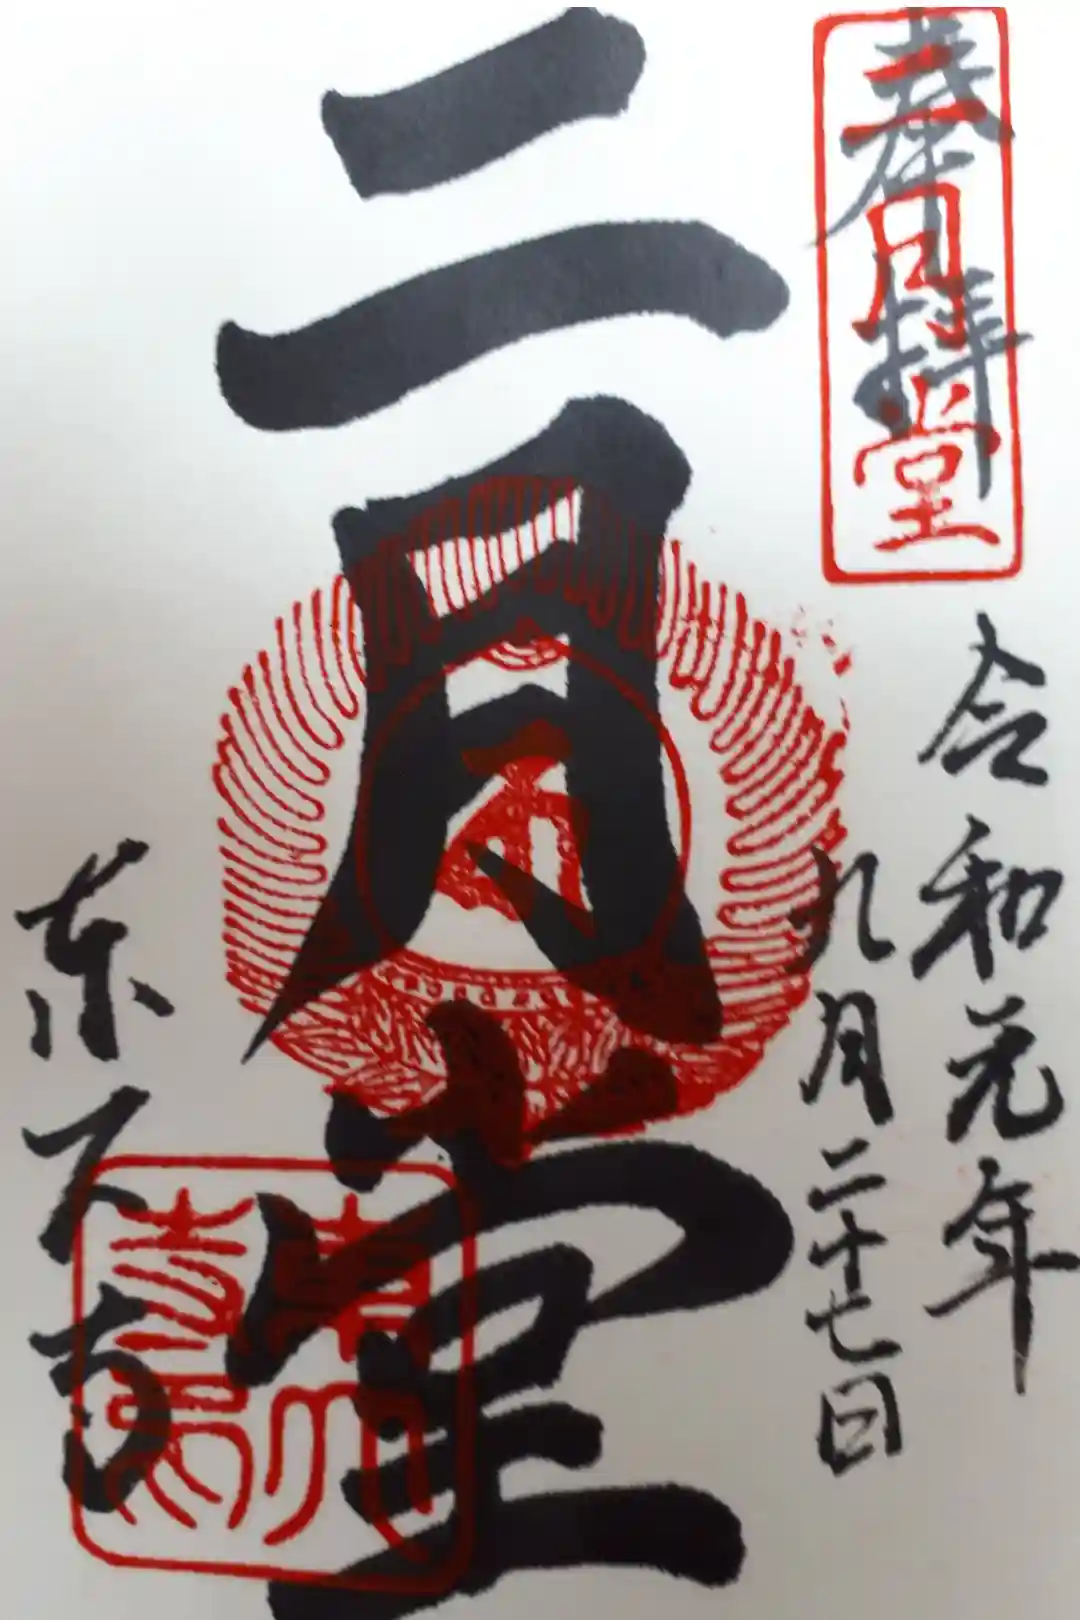 奉拝
二月堂
令和元年
九月二十七日
二月堂
東大寺